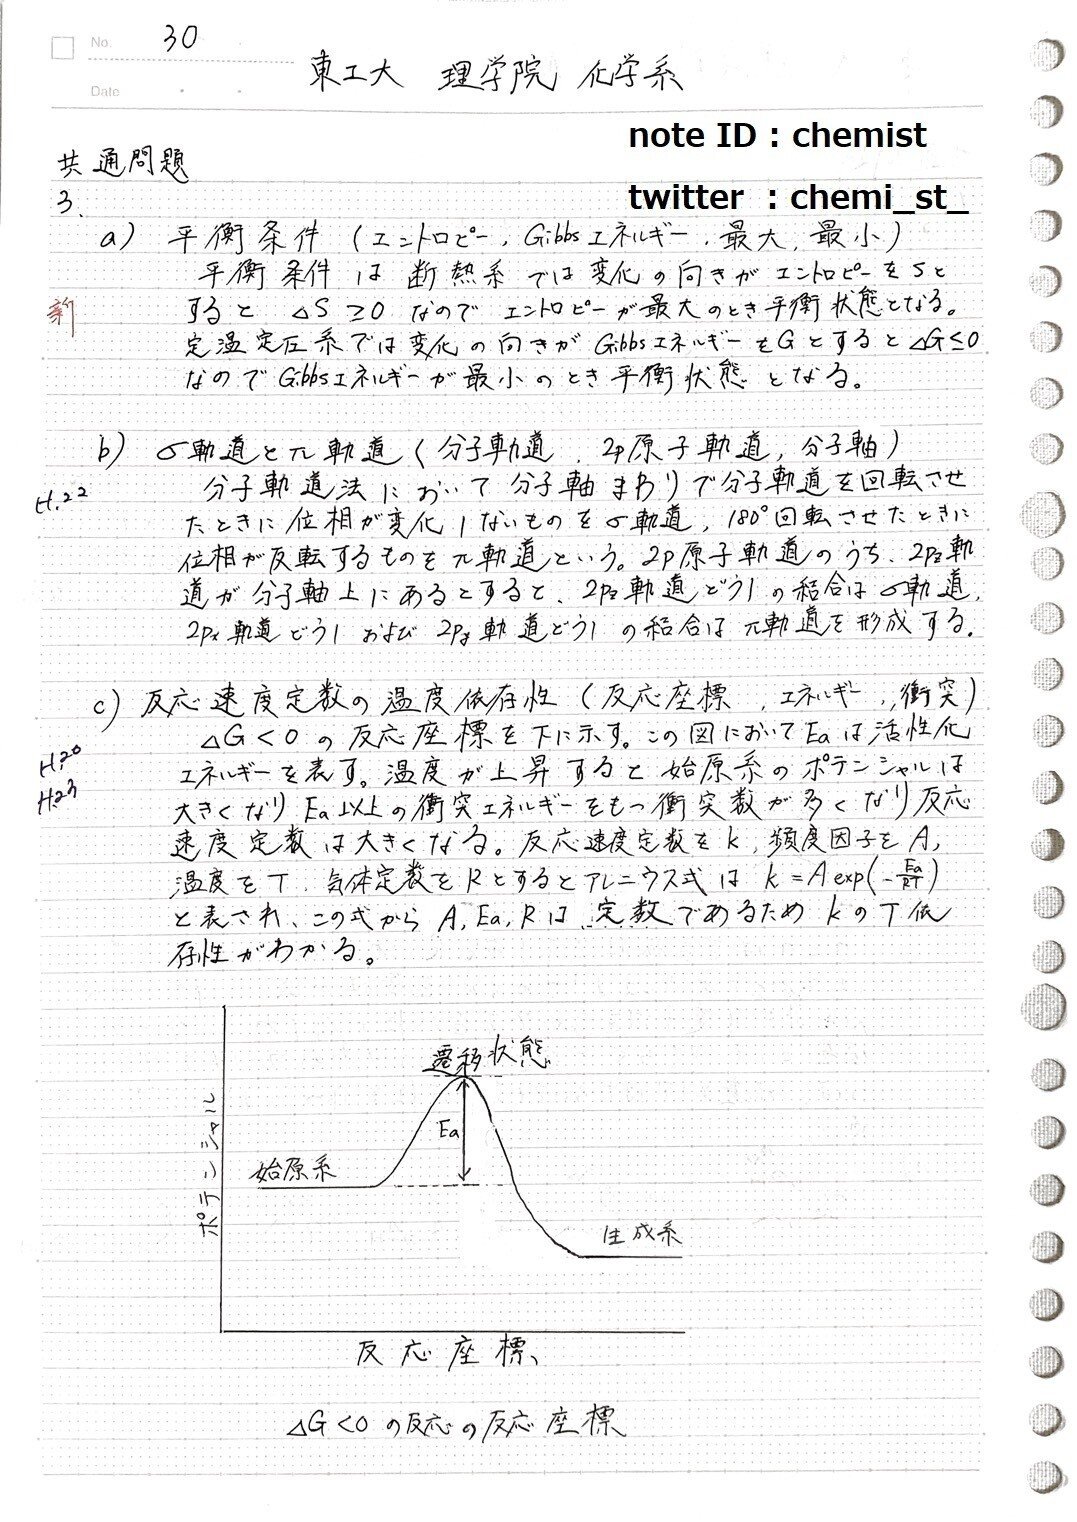 No. 30
Date
東工大 理学院 化学系
note ID : chemist
twitter : chemi_st_
共通問題
3.
a) 平衡条件 (エントロピー, Gibbsエネルギー, 最大, 最小)
平衡条件は断熱系では変化の向きがエントロピーをSと
新 すると △S≥0 なので エントロピーが最大のとき平衡状態となる。
定温定圧系では変化の向きがGibbsエネルギーをGとすると△G≤0
なのでGibbsエネルギーが最小のとき平衡状態となる。
b) σ軌道とπ軌道 (分子軌道, 2p原子軌道, 分子軸)
H.22 分子軌道法において分子軸まわりで分子軌道を回転させ
たときに位相が変化しないものをσ軌道, 180°回転させたときに
位相が反転するものをπ軌道という。2p原子軌道のうち、2pz軌
道が分子軸上にあるとすると、2pz軌道どうしの結合はσ軌道,
2px軌道どうしおよび2py軌道どうしの結合はπ軌道を形成する.
c) 反応速度定数の温度依存性 (反応座標, エネルギー, 衝突)
△G<0の反応座標を下に示す。この図においてEaは活性化
H20 エネルギーを表す。温度が上昇すると始原系のポテンシャルは
H23 大きくなりEa以上の衝突エネルギーをもつ衝突数が多くなり反応
速度定数は大きくなる。反応速度定数をk, 頻度因子をA,
温度をT, 気体定数をRとするとアレニウス式は k=Aexp(-Ea/RT)
と表され、この式からA,Ea,Rは定数であるためkのT依
存性がわかる。
遷移状態
Ea
始原系
生成系
ポテンシャル
反応座標
△G<0の反応の反応座標